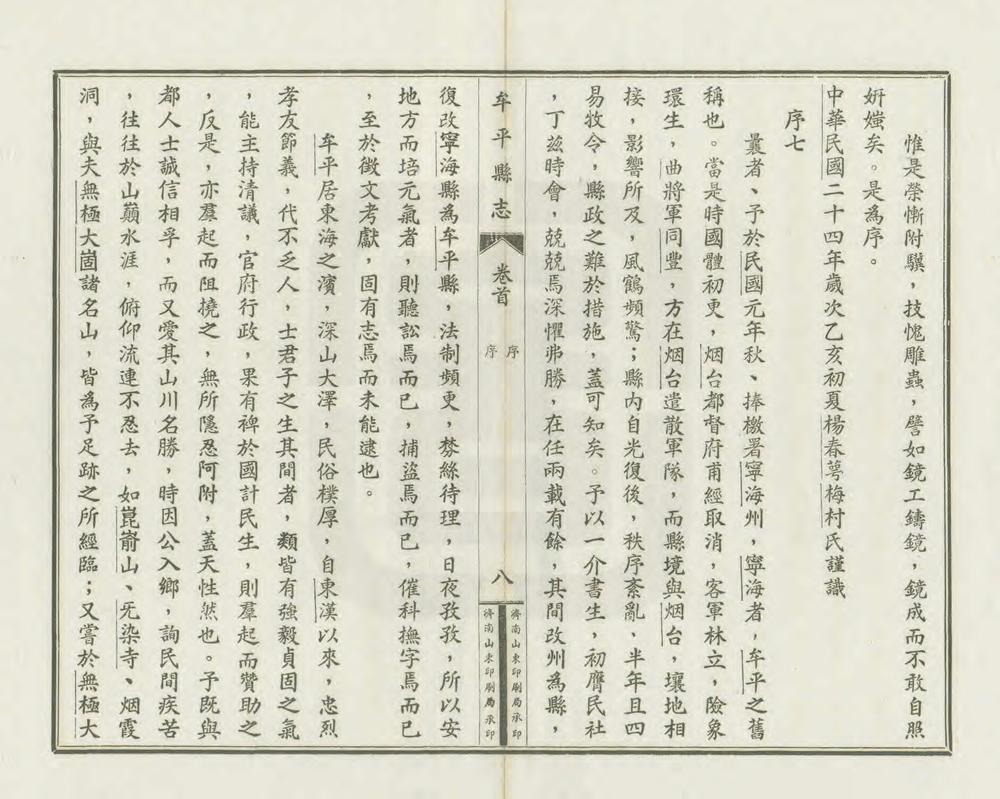 惟是榮慚附驥，技愧雕蟲，譬如鏡工鑄鏡，鏡成而不敢自照
妍媸矣。是為序。
中華民國二十四年歲次乙亥初夏楊春萼梅村氏謹識
序七
曩者、予於民國元年秋、捧檄署寧海州，寧海者，牟平之舊
稱也。當是時國體初更，烟台都督府甫經取消，客軍林立，險象
環生，曲將軍同豐，方在烟台遣散軍隊，而縣境與烟台，壤地相
接，影響所及，風鶴頻驚；縣內自光復後，秩序紊亂、半年且四
易牧令，縣政之難於措施，蓋可知矣。予以一介書生，初膺民社
，丁茲時會，兢兢焉深懼弗勝，在任兩載有餘，其間改州為縣，
牟平縣志
卷首
序
序
八
濟南山東印刷局承印
濟南山東印刷局承印
復改寧海縣為牟平縣，法制頻更，棼絲待理，日夜孜孜，所以安
地方而培元氣者，則聽訟焉而已，捕盜焉而已，催科撫字焉而已
，至於徵文考獻，固有志焉而未能逮也。
牟平居東海之濱，深山大澤，民俗樸厚，自東漢以來，忠烈
孝友節義，代不乏人，士君子之生其間者，類皆有強毅貞固之氣
，能主持清議，官府行政，果有裨於國計民生，則羣起而贊助之
，反是，亦羣起而阻撓之，無所隱忍阿附，蓋天性然也。予既與
都人士誠信相孚，而又愛其山川名勝，時因公入鄉，詢民間疾苦
，往往於山巔水涯，俯仰流連不忍去，如崑嵛山、旡染寺、烟霞
洞，與夫無極大崮諸名山，皆為予足跡之所經臨；又嘗於無極大